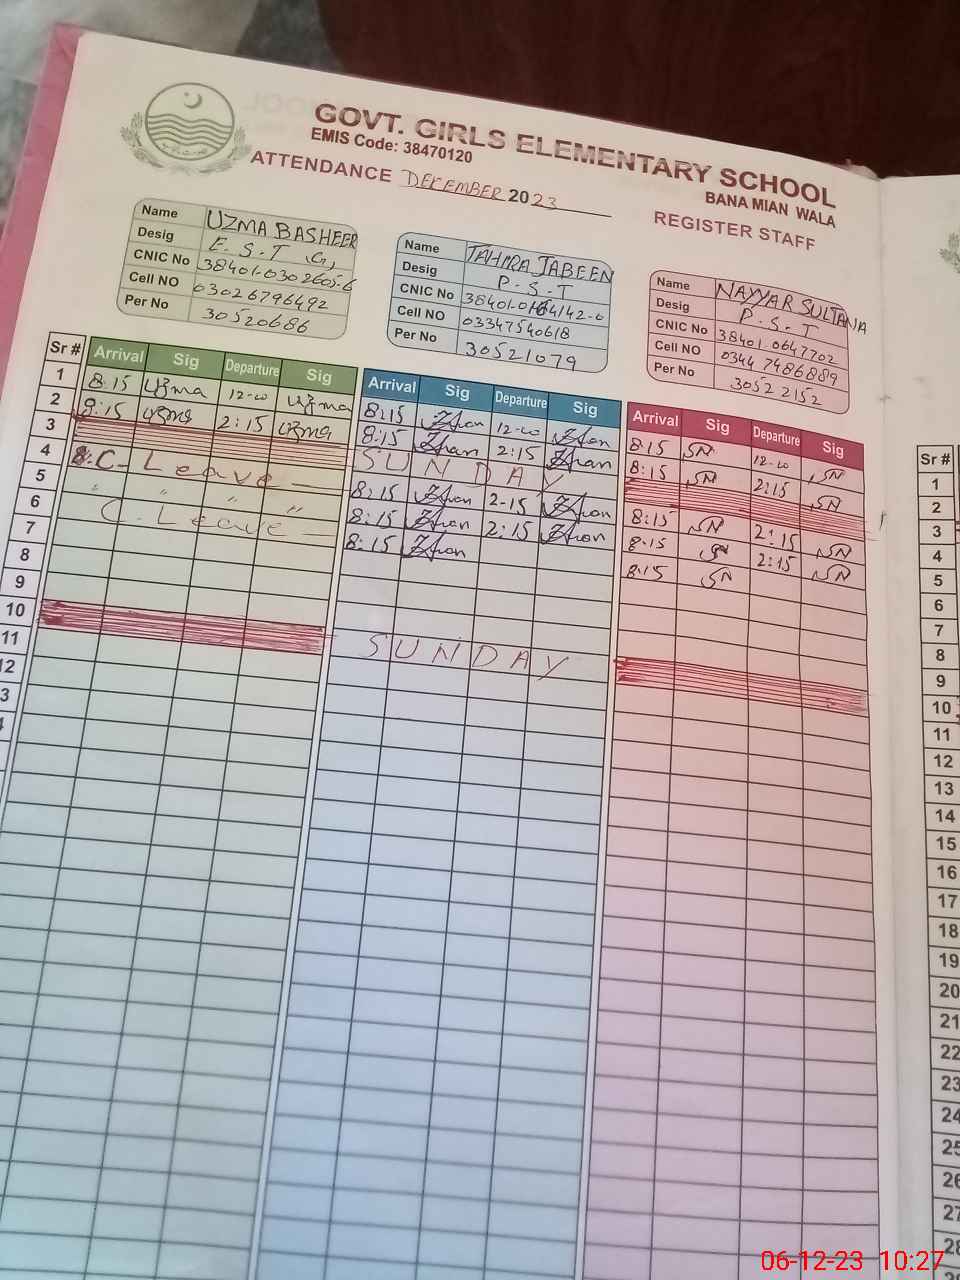 GOVT. GIRLS ELEMENTARY SCHOOL
EMIS Code: 38470120
BANA MIAN WALA
ATTENDANCE DECEMBER 2023
REGISTER STAFF
Name UZMA BASHEER
Desig E.S.T G,
CNIC No 38401-0302605-6
Cell NO 03026796492
Per No 30520686
Name TAHIRA JABEEN
Desig P.S.T
CNIC No
Cell NO 03347540618
Per No 30521079
Name NAYYAR SULTANA
Desig P.S.T
CNIC No 38401 0647702
Cell NO 0344 7486889
Per No 3052 2152
Sr # Arrival Sig Departure Sig Arrival Sig Departure Sig Arrival Sig Departure Sig Sr #
1 8:15 Uzma 12-00 Uzma 8:15 12-00 8:15 SN 12-00 SN 1
2 8:15 Uzma 2:15 Uzma 8:15 2:15 8:15 SN 2:15 SN 2
3 SUNDAY 3
4 C-Leave 8:15 2-15 8:15 SN 2:15 SN 4
5 " " " " 8:15 2:15 8:15 SN 2:15 SN 5
6 C.Leave 8:15 8:15 SN 6
7 7
8 8
9 9
10 SUNDAY 10
11 11
12 12
3 13
14
15
16
17
18
19
20
21
22
23
24
25
26
27
28
06-12-23 10:27